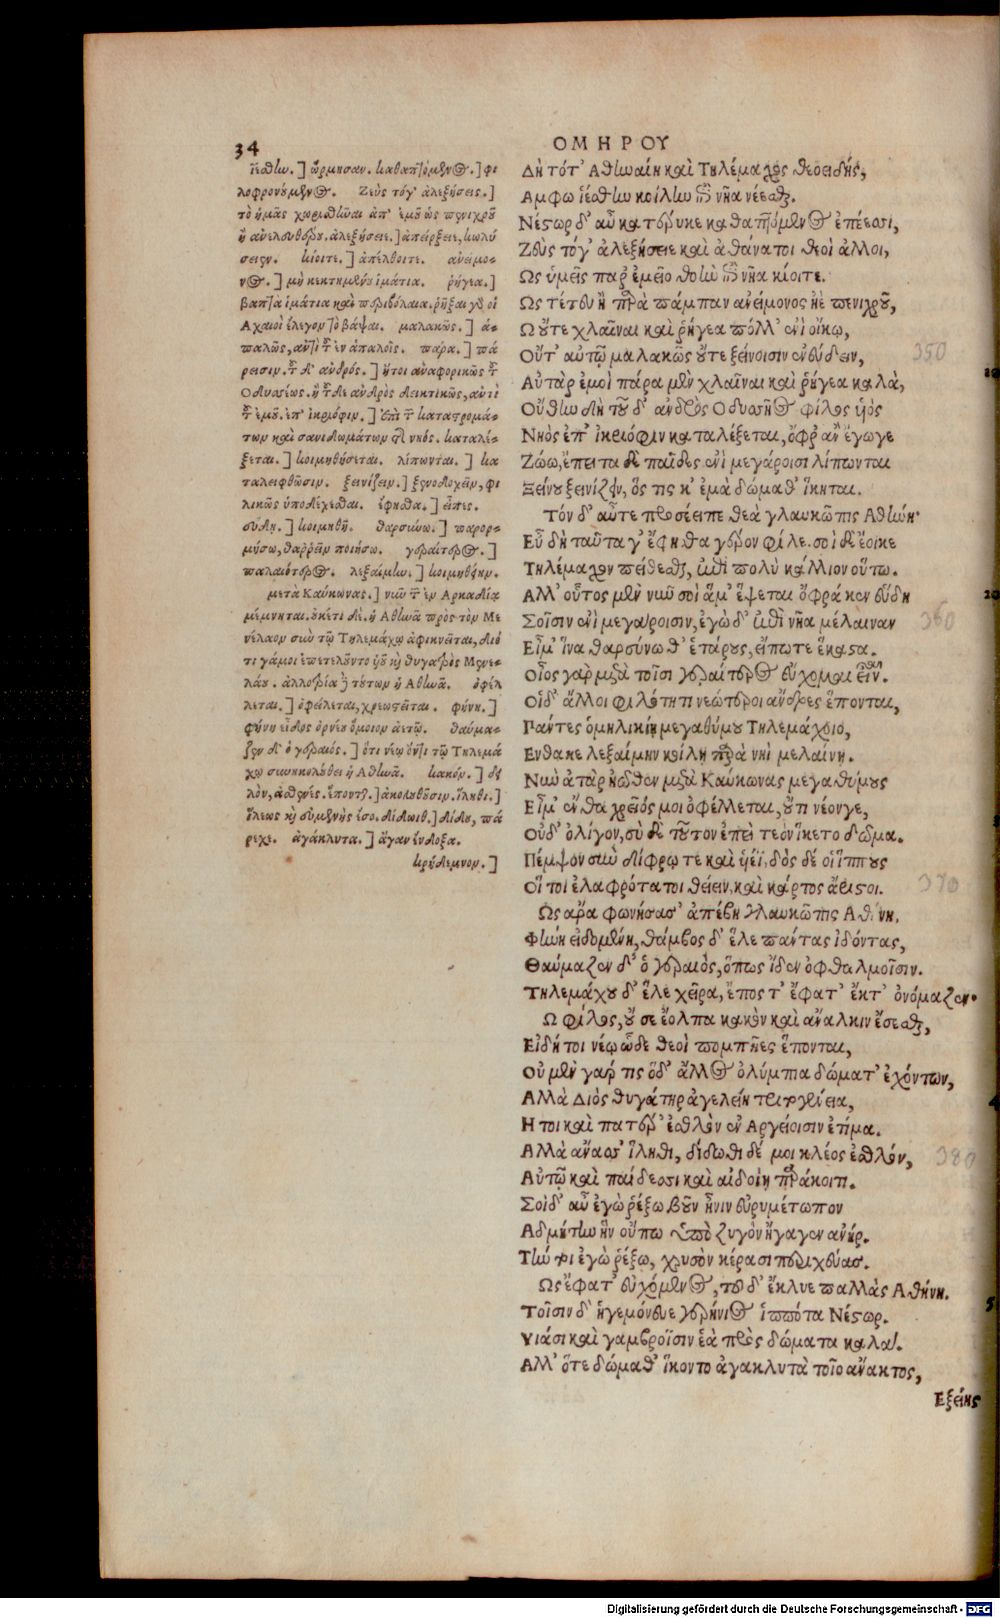 34
ΟΜΗΡΟΥ
ἱέσθων.] ὥρμησαν. καθαπτόμενος.] φι
λοφρονούμενος. Ζεὺς τόγ' ἀλεξήσειε.]
τὸ ἡμᾶς χωρισθῆναι ἀπ' ἐμοῦ ὡς πενιχροῦ
ἢ ἀνελευθέρου. ἀλεξήσειε.] ἀπείρξειε, κωλύ
σειεν. κίοιτε.] ἀπέλθοιτε. ἀνείμο-
νος.] μὴ κεκτημένου ἱμάτια. ῥήγεα.]
βαπτὰ ἱμάτια καὶ περιβόλαια. ῥῆξαι γὰρ οἱ
Ἀχαιοὶ ἔλεγον τὸ βάψαι. μαλακῶς.] ἁ-
παλῶς, ἀντὶ τοῦ ἐν ἁπαλοῖς. πάρα.] πά
ρεισιν. τοῦ δ' ἀνδρός.] ἤτοι ἀναφορικῶς τοῦ
Ὀδυσσέως. ἢ τοῦδε ἀνδρὸς δεικτικῶς, ἀντὶ
τοῦ ἐμοῦ. ἐπ' ἰκριόφιν.] ἐπὶ τῶν καταστρομά-
των καὶ σανιδωμάτων τῆς νηός. καταλέ-
ξεται.] κοιμηθήσεται. λίπωνται.] κα
ταλειφθῶσιν. ξεινίζειν.] ξενοδοχεῖν, φι
λικῶς ὑποδέχεσθαι. ἔφησθα.] εἶπες.
εὕδῃ.] κοιμηθῇ. θαρσύνω.] παρορ-
μήσω, θαῤῥεῖν ποιήσω. γεραίτερος.]
παλαιότερος. λεξαίμην.] κοιμηθείην.
μετὰ Καύκωνας.] νῦν τῶν ἐν Ἀρκαδίᾳ
μέμνηται. οὐκέτι δὲ ἡ Ἀθηνᾶ πρὸς τὸν Με
νέλαον σὺν τῷ Τηλεμάχῳ ἀφικνεῖται, διό
τι γάμοι ἐπετελοῦντο υἱοῦ καὶ θυγατρὸς Μενε-
λάου. ἀλλοτρία δὲ τούτων ἡ Ἀθηνᾶ. ὀφέλ
λεται.] ὀφείλεται, χρεωστεῖται. φήνη.]
φήνη εἶδος ὀρνέου ὅμοιον ἀετῷ. θαύμα-
ζεν δ' ὁ γεραιός.] ὅτι νέῳ ὄντι τῷ Τηλεμά
χῳ συνηκολούθει ἡ Ἀθηνᾶ. κακόν.] δει
λόν, ἀσθενές. ἕποντται.] ἀκολουθοῦσιν. ἵληθι.]
ἵλεως καὶ εὐμενὴς ἔσο. δίδωθι.] δίδου, πά
ρεχε. ἀγάκλυτα.] ἄγαν ἔνδοξα.
κρήδεμνον.]
Δὴ τότ' Αθηναίη καὶ Τηλέμαχος θεοειδής,
Αμφω ἱέσθην κοίλην ἐπὶ νῆα νέεσθαι.
Νέστωρ δ' αὖ κατέρυκε καθαπτόμενος ἐπέεσσι,
Ζεὺς τόγ' ἀλεξήσειε καὶ ἀθάνατοι θεοὶ ἄλλοι,
Ως ὑμεῖς παρ' ἐμεῖο θοὴν ἐπὶ νῆα κίοιτε.
Ως τέτευ ἢ παρὰ πάμπαν ἀνείμονος ἠὲ πενιχροῦ,
Ω οὔτε χλαῖναι καὶ ῥήγεα πόλλ' ἐνὶ οἴκῳ,
Οὔτ' αὐτῷ μαλακῶς οὔτε ξείνοισιν ἐνεύδειν,
Αὐτὰρ ἐμοὶ πάρα μὲν χλαῖναι καὶ ῥήγεα καλὰ,
Οὔθην δὴ τοῦ δ' ἀνδρὸς Οδυσσῆος φίλος υἱὸς
Νηὸς ἐπ' ἰκριόφιν καταλέξεται, ὄφρ' ἂν ἔγωγε
Ζώω, ἔπειτα δὲ παῖδες ἐνὶ μεγάροισι λίπωνται
Ξείνου ξεινίζειν, ὅς τις κ' ἐμὰ δώμαθ' ἵκηται.
Τόν δ' αὖτε προσέειπε θεὰ γλαυκῶπις Αθήνη·
Εὖ δὴ ταῦτα γ' ἔφησθα γέρον φίλε. σοὶ δὲ ἔοικε
Τηλέμαχον πείθεσθαι, ἐπεὶ πολὺ κάλλιον οὕτω.
Αλλ' οὗτος μὲν νῦν σοὶ ἅμ' ἕψεται ὄφρά κεν εὕδη
Σοῖσιν ἐνὶ μεγάροισιν, ἐγὼ δ' ἐπὶ νῆα μέλαιναν
Εἶμ' ἵνα θαρσύνω θ' ἑτάρους, εἴπω τε ἕκαστα.
Οἶος γὰρ μετὰ τοῖσι γεραίτερος εὔχομαι εἶναι.
Οἱ δ' ἄλλοι φιλότητι νεώτεροι ἄνδρες ἕπονται,
Πάντες ὁμηλικίη μεγαθύμου Τηλεμάχοιο,
Ενθα κε λεξαίμην κοίλῃ παρὰ νηὶ μελαίνῃ.
Νῦν ἀτὰρ ἠῶθεν μετὰ Καύκωνας μεγαθύμους
Εἶμ' ἔνθα χρεῖός μοι ὀφέλλεται, οὔτι νέον γε,
Οὐδ' ὀλίγον, σὺ δὲ τοῦτον ἐπεὶ τεὸν ἵκετο δῶμα.
Πέμψον σὺν δίφρῳ τε καὶ υἱέϊ, δὸς δέ οἱ ἵππους
Οἵ τοι ἐλαφρότατοι θείειν, καὶ κάρτος ἄριστοι.
Ως ἄρα φωνήσασ' ἀπέβη γλαυκῶπις Αθήνη,
Φήνῃ εἰδομένη, θάμβος δ' ἕλε πάντας ἰδόντας,
Θαύμαζεν δ' ὁ γεραιὸς, ὅπως ἴδεν ὀφθαλμοῖσιν.
Τηλεμάχου δ' ἕλε χεῖρα, ἔπος τ' ἔφατ' ἔκ τ' ὀνόμαζεν·
Ω φίλος, οὔ σε ἔολπα κακὸν καὶ ἄναλκιν ἔσεσθαι,
Εἰ δή τοι νέῳ ὧδε θεοὶ πομπῆες ἕπονται,
Οὐ μὲν γάρ τις ὅδ' ἄλλος ὀλύμπια δώματ' ἐχόντων,
Αλλὰ Διὸς θυγάτηρ ἀγελείη τριτογένεια,
Η τοι καὶ πατέρ' ἐσθλὸν ἐν Αργείοισιν ἐτίμα.
Αλλὰ ἄνασσ' ἵληθι, δίδωθι δέ μοι κλέος ἐσθλόν,
Αὐτῷ καὶ παίδεσσι καὶ αἰδοίῃ παράκοιτι.
Σοὶ δ' αὖ ἐγὼ ῥέξω βοῦν ἦνιν εὐρυμέτωπον
Αδμήτην ἣν οὔπω ὑπὸ ζυγὸν ἤγαγεν ἀνήρ.
Τήν τοι ἐγὼ ῥέξω, χρυσὸν κέρασι περιχεύας.
Ως ἔφατ' εὐχόμενος, τοῦ δ' ἔκλυε παλλὰς Αθήνη.
Τοῖσιν δ' ἡγεμόνευε γερήνιος ἱππότα Νέστωρ.
Υἱάσι καὶ γαμβροῖσιν ἑὰ πρὸς δώματα καλά.
Αλλ' ὅτε δώμαθ' ἵκοντο ἀγακλυτὰ τοῖο ἄνακτος,
Εξείης
350
360
370
380
Digitalisierung gefördert durch die Deutsche Forschungsgemeinschaft - DFG